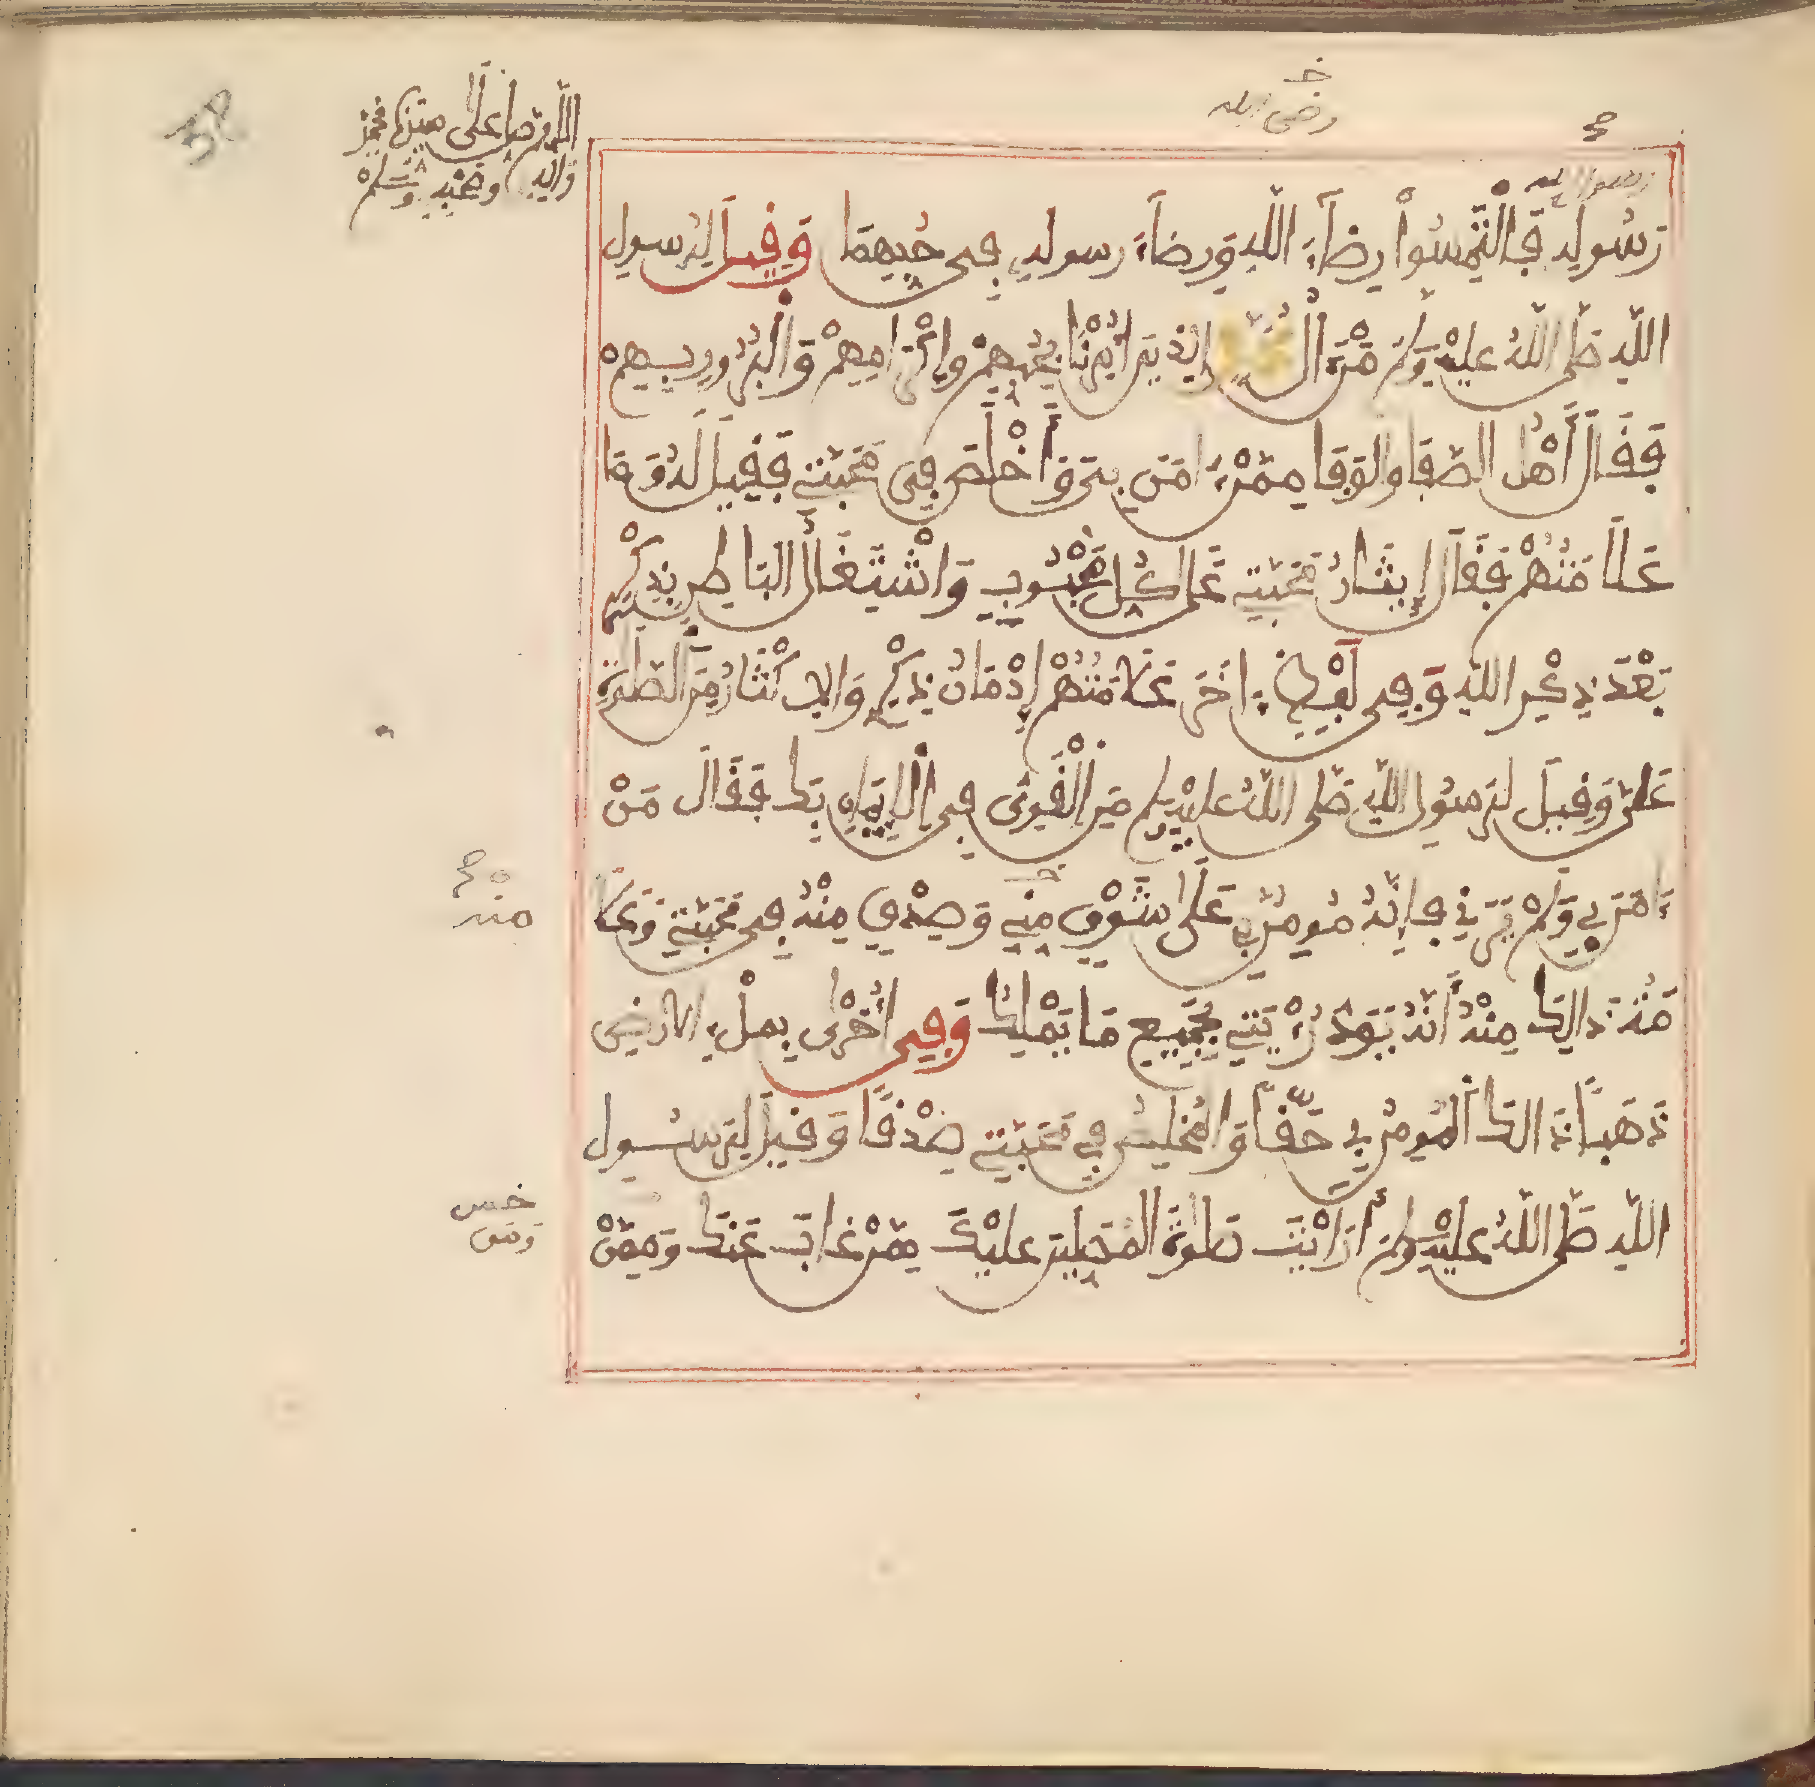 اللهم صل على سيدنا محمد
وآله وصحبه وسلم
خ
رضى الله
صح
رسول الله
رَسُولِهِ فَالْتَمِسُواْ رِضَآءَ اللَّهِ وَرِضَآءَ رسولهِ فِى حُبِّهِمَا وَقِيلَ لِرَسولِ
اللَّهِ صَلَّى اللَّهُ عليْهِ وَسَلَّمَ مَنَ الُ الذِينَ أُمِرْنَا بِحُبِّهِمْ وإِكْرَامِهِمْ وَالْبُرُورِ بِهِمْ
فَقَالَ أَهْلُ الصَّفَا والْوَفَا مِمَّنَ ءَامَنَ بِى وَأَخْلَصَ فِى مَحَبَّتِى فَقِيلَ لَهُ وَمَا
عَلَامَتُهُمْ فَقَالَ إِيثَارُ مَحَبَّتِى عَلَى كُلِّ مَحْبُوبٍ وَاشْتِغَالُ الْبَاطِنِ بِذِكْرِى
بَعْدَ ذِكْرِ اللَّهِ وَفِى لَفْظٍ اخَرَ عَلَامَتُهُمْ إِدْمَانُ ذِكْرِى وَالاِكْثَارُ مِنَ الصَّلَوةِ
عَلَىَّ وَقِيلَ لِرَسُولِ اللَّهِ صَلَّى اللَّهُ عليْهِ وسلم مَنِ الْقَوِىُّ فِى الْإِيمَانِ بِكَ فَقَالَ مَنَ
ءَامَنَ بِى وَلَمْ يَرَنِى فَإِنَّهُ مُومِنٌ بِى عَلَى شَوْقٍ مِنِّى وَصِدْقٍ مِنْهُ فِى مَحَبَّتِى وَعَلَا
صح منه
مَةُ ذَالِكَ مِنْهُ أَنَّهُ يَوَدُّ رُؤْيَتِى بِجَمِيعِ مَا يَمْلِكُ وَفِى أُخْرَى بِمِلْءِ الارْضِ
ذَهَبًا ذَالِكَ الْمُومِنُ بِى حَقًّا وَالْمُخْلِصُ فِى مَحَبَّتِى صِدْقًا وَقِيلَ لِرَسُولِ
اللَّهِ صَلَّى اللَّهُ عليْهِ وسلم أَرَأَيْتَ صَلَوةَ الْمُصَلِّينَ عليْكَ مِمَّنْ غَابَ عَنْكَ وَمِمَّنْ
وَمَن